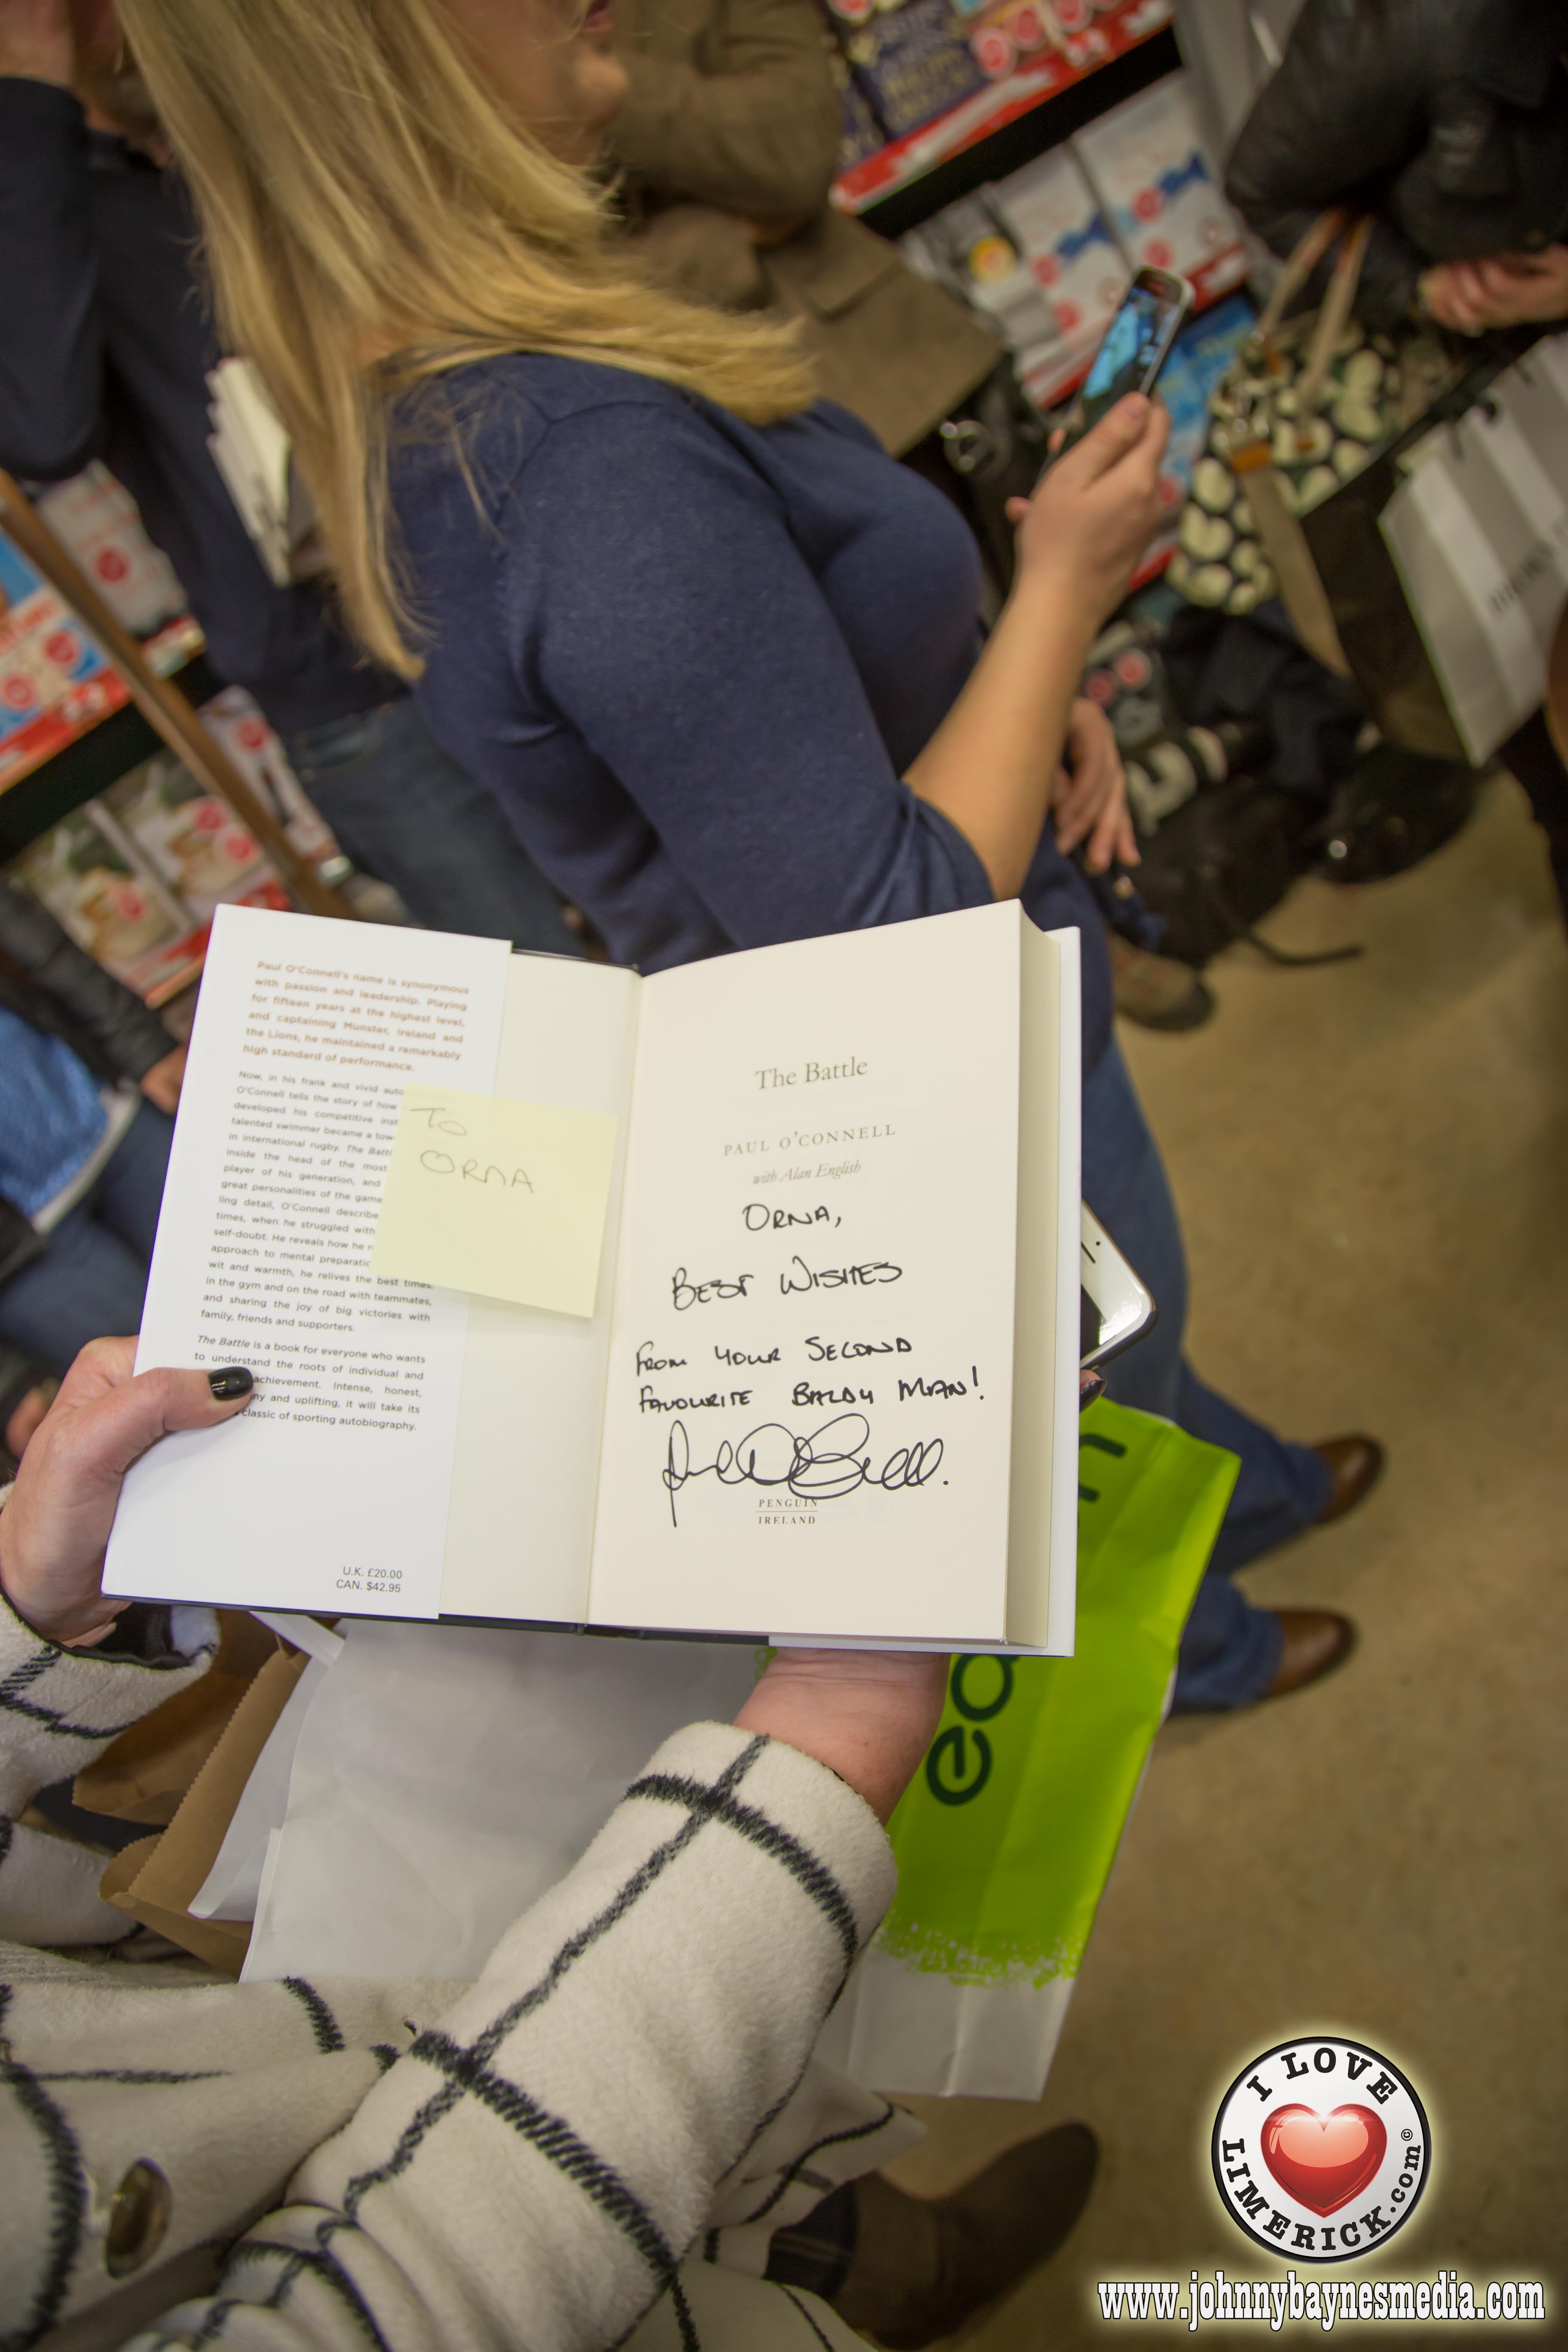 Paul O'Connell's name is synonymous
with passion and leadership. Playing
for fifteen years at the highest level,
and captaining Munster, Ireland and
the Lions, he maintained a remarkably
high standard of performance.
Now, in his frank and vivid auto
O'Connell tells the story of how
developed his competitive inst
talented swimmer became a tow
in international rugby. The Battl
inside the head of the most
player of his generation, and
great personalities of the game
ling detail, O'Connell describe
times, when he struggled with
self-doubt. He reveals how he r
approach to mental preparatio
wit and warmth, he relives the best times
in the gym and on the road with teammates,
and sharing the joy of big victories with
family, friends and supporters.
The Battle is a book for everyone who wants
to understand the roots of individual and
achievement. Intense, honest,
ny and uplifting, it will take its
classic of sporting autobiography.
U.K. £20.00
CAN. $42.95
TO
ORNA
The Battle
PAUL O'CONNELL
with Alan English
ORNA,
BEST WISHES
FROM YOUR SECOND
FAVOURITE BALDY MAN!
PENGUIN
IRELAND
I LOVE
LIMERICK.com©
www.johnnybaynesmedia.com